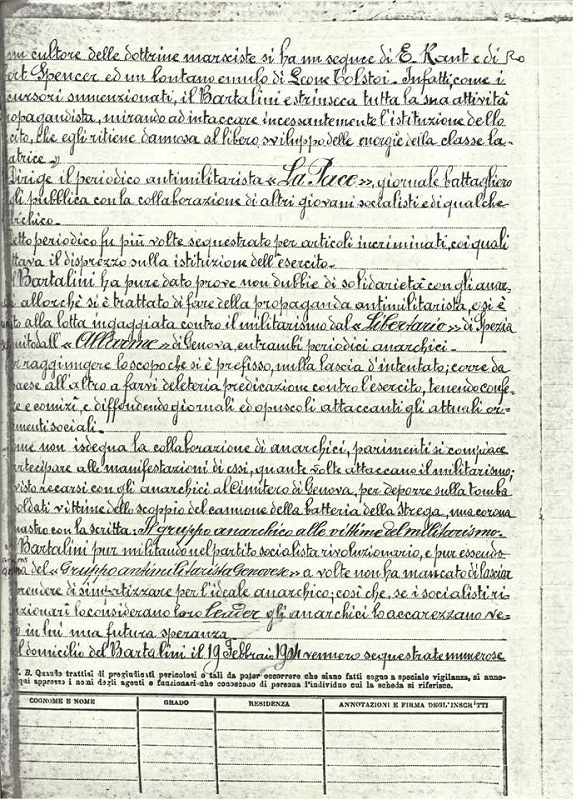 un cultore delle dottrine marxiste si ha un seguce di E. Kant e di Ro
ert Spencer ed un lontano emulo di Leone Tolstoi. Infatti, come i
cursori summenzionati, il Bartalini estrinseca tutta la sua attività
opagandista, mirando ad intaccare incessantemente l'istituzione dello
cito, che egli ritiene dannosa al libero sviluppo delle energie della classe la-
atrice.»
Dirige il periodico antimilitarista «La Pace», giornale battagliero
gli pubblica con la collaborazione di altri giovani socialisti e di qualche
archico.
etto periodico fu più volte sequestrato per articoli incriminati, coi quali
ttava il disprezzo sulla istituzione dell'esercito.
l Bartalini ha pure dato prove non dubbie di solidarietà con gli anar-
allorchè si è trattato di fare della propaganda antimilitarista, e si è
to alla lotta ingaggiata contro il militarismo dal «Libertario» di Spezia
uito dall'«Allarme» di Genova, entrambi periodici anarchici.
raggiungere lo scopo che si è prefisso, nulla lascia d'intentato; corre da
aese all'altro a farvi deleteria predicazione contro l'esercito, tenendo confe-
ze e comizi, e diffondendo giornali ed opuscoli attaccanti gli attuali or-
menti sociali.
ome non isdegna la collaborazione di anarchici, parimenti si compiace
rtecipare alle manifestazioni di essi, quante volte attaccano il militarismo;
visto recarsi con gli anarchici al Cimitero di Genova, per deporre sulla tomba
oldati vittime dello scoppio del cannone della batteria della Strega, una corona
nastro con la scritta: Il gruppo anarchico alle vittime del militarismo.
Bartalini pur militando nel partito socialista rivoluzionario, e pur essendo
del «Gruppo antimilitarista Genovese» a volte non ha mancato di lasciar
prendere di simpatizzare per l'ideale anarchico; così che, se i socialisti ri-
zionari lo considerano loro leader gli anarchici lo accarezzano ve-
o in lui una futura speranza.
l domicilio del Bartalini il 19 Febbraio 1904 vennero sequestrate numerose
. B. Quando trattisi di pregiudicati pericolosi o tali da poter occorrere che siano fatti segno a speciale vigilanza, si anno-
qui appresso i nomi degli agenti o funzionari che conoscono di persona l'individuo cui la scheda si riferisce.
COGNOME E NOME GRADO RESIDENZA ANNOTAZIONI E FIRMA DEGL'INSCRITTI